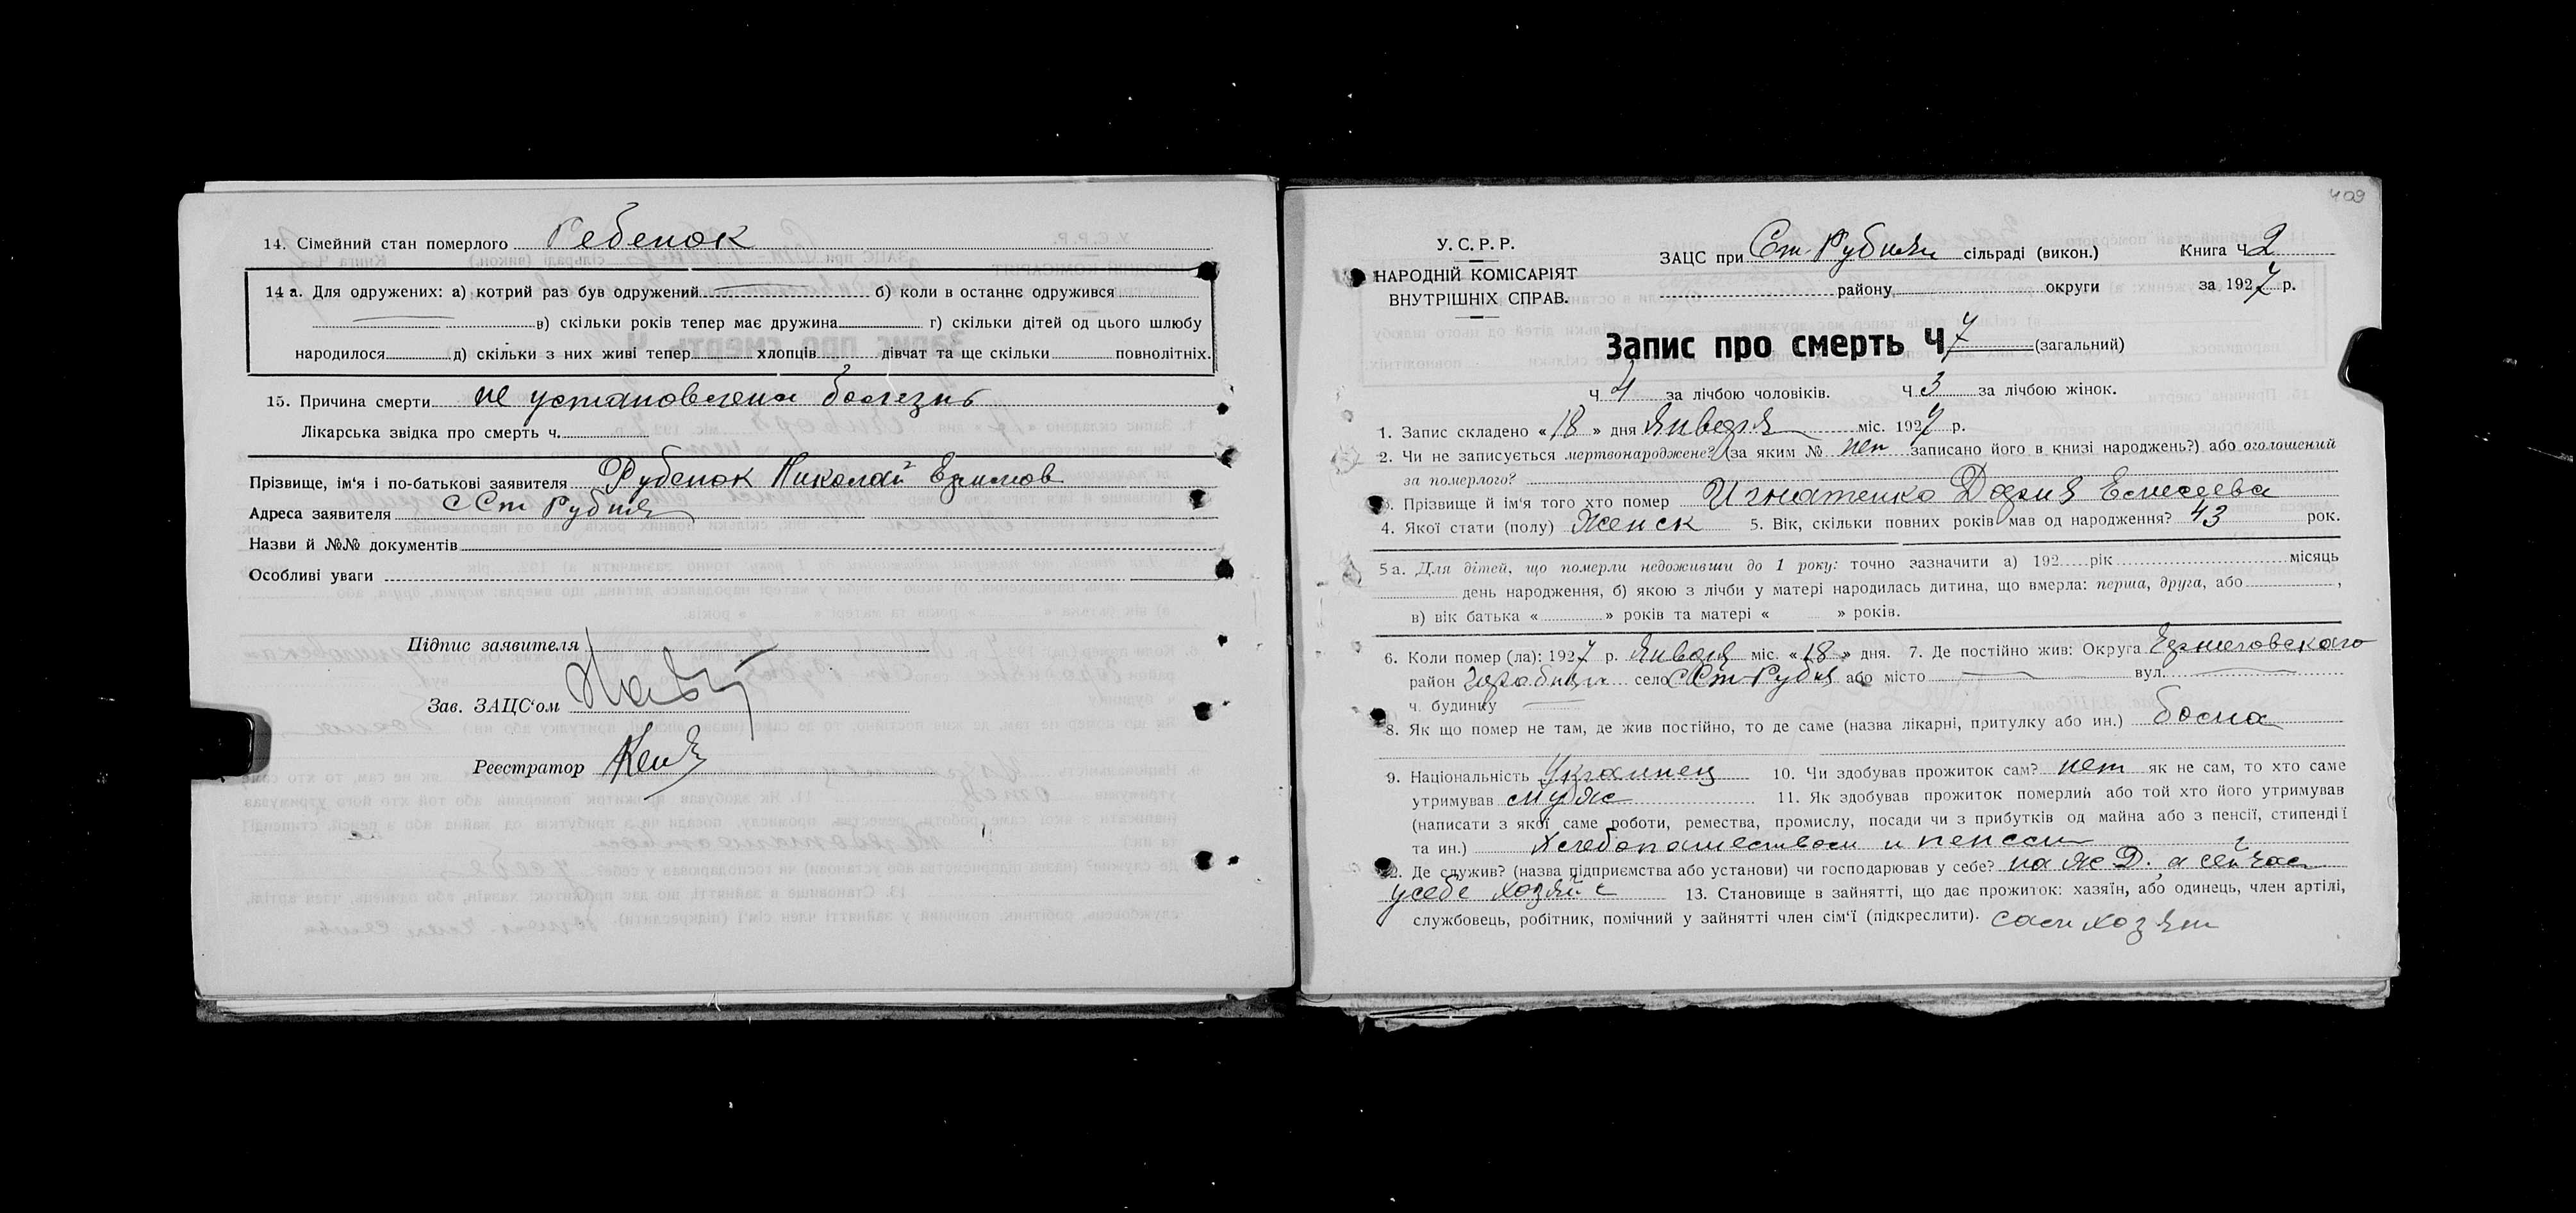 14. Сімейний стан померлого Ребенок
14 а. Для одружених: а) котрий раз був одружений б) коли в останнє одружився
в) скільки років тепер має дружина г) скільки дітей од цього шлюбу
народилося д) скільки з них живі тепер хлопців дівчат та ще скільки повнолітніх.
15. Причина смерти не установлена болезнь
Лікарська звідка про смерть ч.
Прізвище, ім'я і по-батькові заявителя Рубенок Николай Ефимов
Адреса заявителя с Ст Рубня
Назви й №№ документів
Особливі уваги
Підпис заявителя
Зав. ЗАЦС'ом
Реєстратор
409
У. С. Р. Р.
НАРОДНІЙ КОМІСАРІЯТ
ВНУТРІШНІХ СПРАВ.
ЗАЦС при Ст-Рубня сільраді (викон.) Книга Ч 2
району округи за 1927 р.
Запис про смерть Ч 7 (загальний)
Ч 4 за лічбою чоловіків. Ч 3 за лічбою жінок.
1. Запис складено « 18 » дня Января міс. 1927 р.
2. Чи не записується мертвонароджене? (за яким № нет записано його в книзі народжень?) або оголошений
за померлого?
3. Прізвище й ім'я того хто помер Игнатенко Дария Елисеева
4. Якої стати (полу) Женск 5. Вік, скільки повних років мав од народження? 43 рок.
5 а. Для дітей, що померли недоживши до 1 року: точно зазначити а) 192 рік місяць
день народження, б) якою з лічби у матері народилась дитина, що вмерла: перша, друга, або ,
в) вік батька « » років та матері « » років.
6. Коли помер (ла): 1927 р. Января міс. « 18 » дня. 7. Де постійно жив: Округа
район село с Ст-Рубня або місто вул.
ч. будинку
8. Як що помер не там, де жив постійно, то де саме (назва лікарні, притулку або ин.) дома
9. Національність Украинец 10. Чи здобував прожиток сам? нет як не сам, то хто саме
утримував муж 11. Як здобував прожиток померлий або той хто його утримував
(написати з якої саме роботи, ремества, промислу, посади чи з прибутків од майна або з пенсії, стипендії
та ин.) Хлебопашеством и пенсии
12. Де служив? (назва підприємства або установи) чи господарював у себе? на Ж Д. а сейчас
у себе хозяйс 13. Становище в зайнятті, що дає прожиток: хазяїн, або одинець, член артілі,
службовець, робітник, помічний у зайнятті член сім'ї (підкреслити). сам хозяин